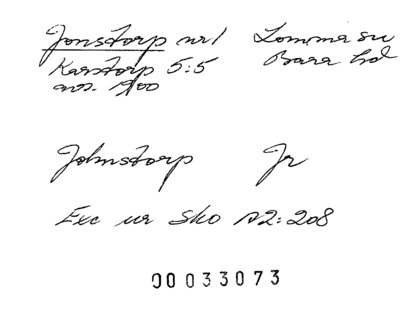 Jonstorp nr 1 Lomma sn
Karstorp 5:5 Bara hd
avs. 1900
Johnstorp Jr
Exc ur Sko A2:208
00033073